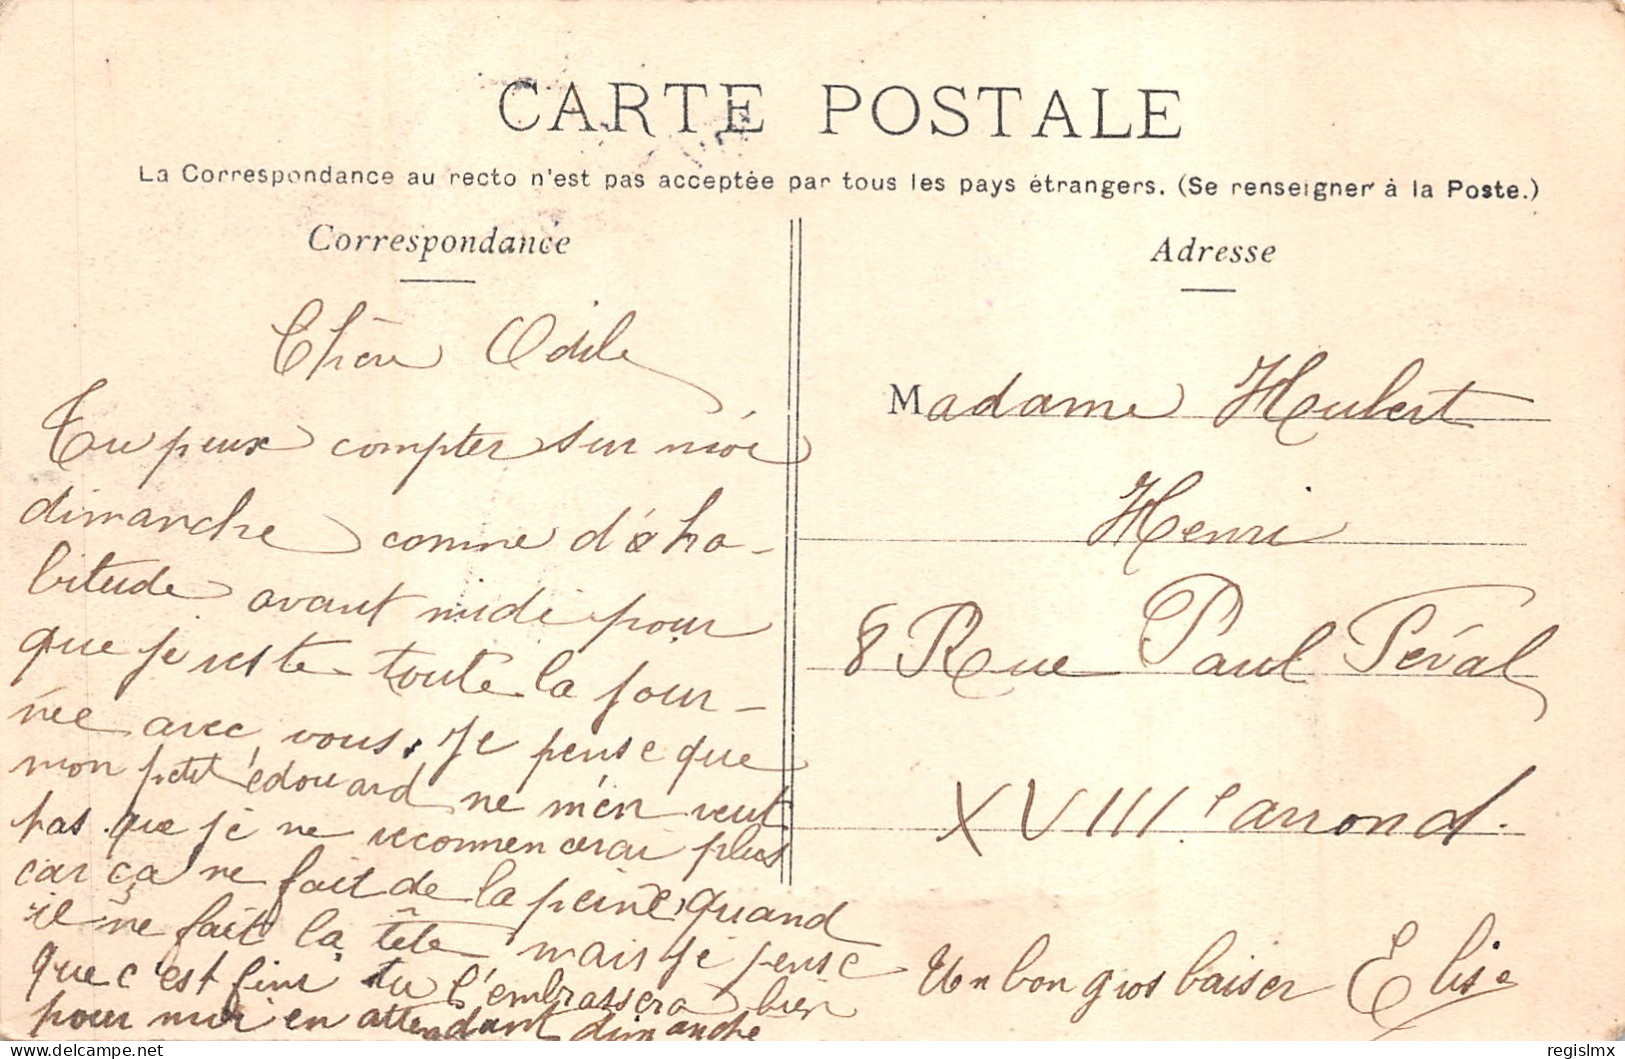 CARTE POSTALE
La Correspondance au recto n'est pas acceptée par tous les pays étrangers. (Se renseigner à la Poste.)
Correspondance
Chère Odile
Tu peux compter sur moi
dimanche comme d'ha-
bitude avant midi pour
que je reste toute la jour-
née avec vous. Je pense que
mon petit édouard ne m'en veut
pas que je ne recommencerai plus
car ça ne fait de la peine quand
il ne fait la tête mais je pense
que c'est fini tu l'embrassera bien
pour moi en attendant dimanche
Adresse
Madame Houbert
Henri
8 Rue Paul Féval
XVIIIe arrond.
Un bon gros baiser Elise
regislmx